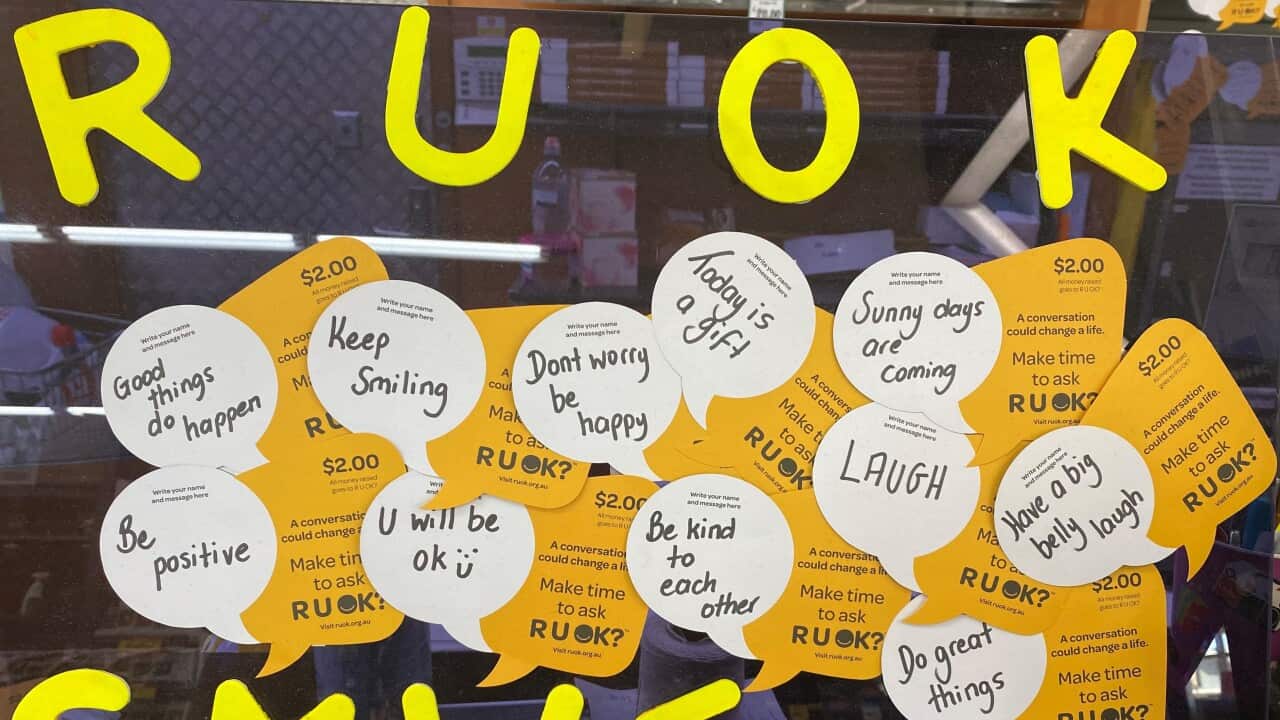 R U O K
$2.00
All money raised
goes to R U OK?
Write your name
and message here
Good
things
do happen
Write your name
and message here
Keep
Smiling
Write your name
and message here
Dont worry
be
happy
Write your name
and message here
Today is
a gift
A conversation
could change a life.
Make time
to ask
R U OK?
Visit ruok.org.au
Write your name
and message here
Sunny days
are
coming
$2.00
All money raised
goes to R U OK?
A conversation
could change a life.
Make time
to ask
R U OK?
Visit ruok.org.au
$2.00
A conversation
could change a life.
Make time
to ask
R U OK?
Visit ruok.org.au
R U OK?
Visit ruok.org.au
Write your name
and message here
LAUGH
Write your name
and message here
Have a big
belly laugh
R U OK?
Visit ruok.org.au
Write your name
and message here
Be
positive
$2.00
All money raised
goes to R U OK?
A conversation
could change a
Make tim
to ask
R U OK?
Visit ruok.org.au
U will be
ok
$2.00
A conversation
could change a life.
Make time
to ask
R U OK?
Visit ruok.org.au
Write your name
and message here
Be kind
to
each
other
A conversation
could change a
Make time
to ask
R U OK?
Visit ruok.org.au
Do great
things
$2.00
All money raised
goes to R U OK?
A conversation
could change a life.
Make time
to ask
R U OK?